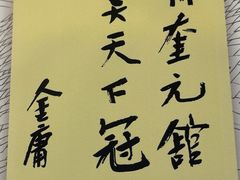 奎元館
天下冠
金庸